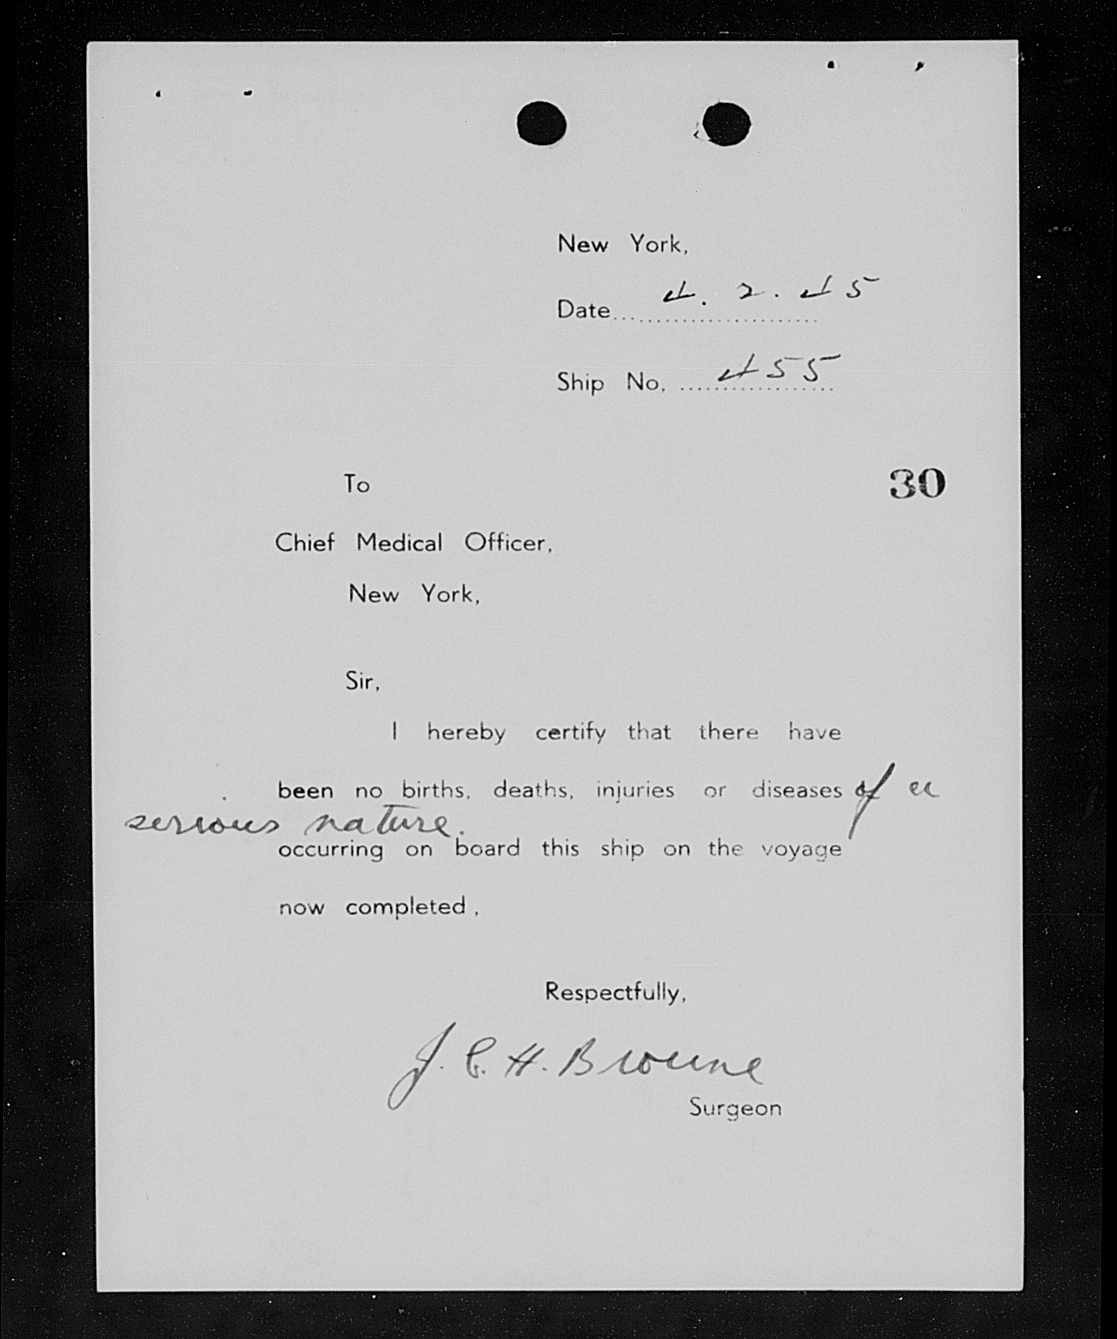 New York,
Date 4. 2. 45
Ship No. 455
To
30
Chief Medical Officer,
New York,
Sir,
I hereby certify that there have
been no births, deaths, injuries or diseases of a
serious nature.
occurring on board this ship on the voyage
now completed,
Respectfully,
J. C. H. Browne
Surgeon